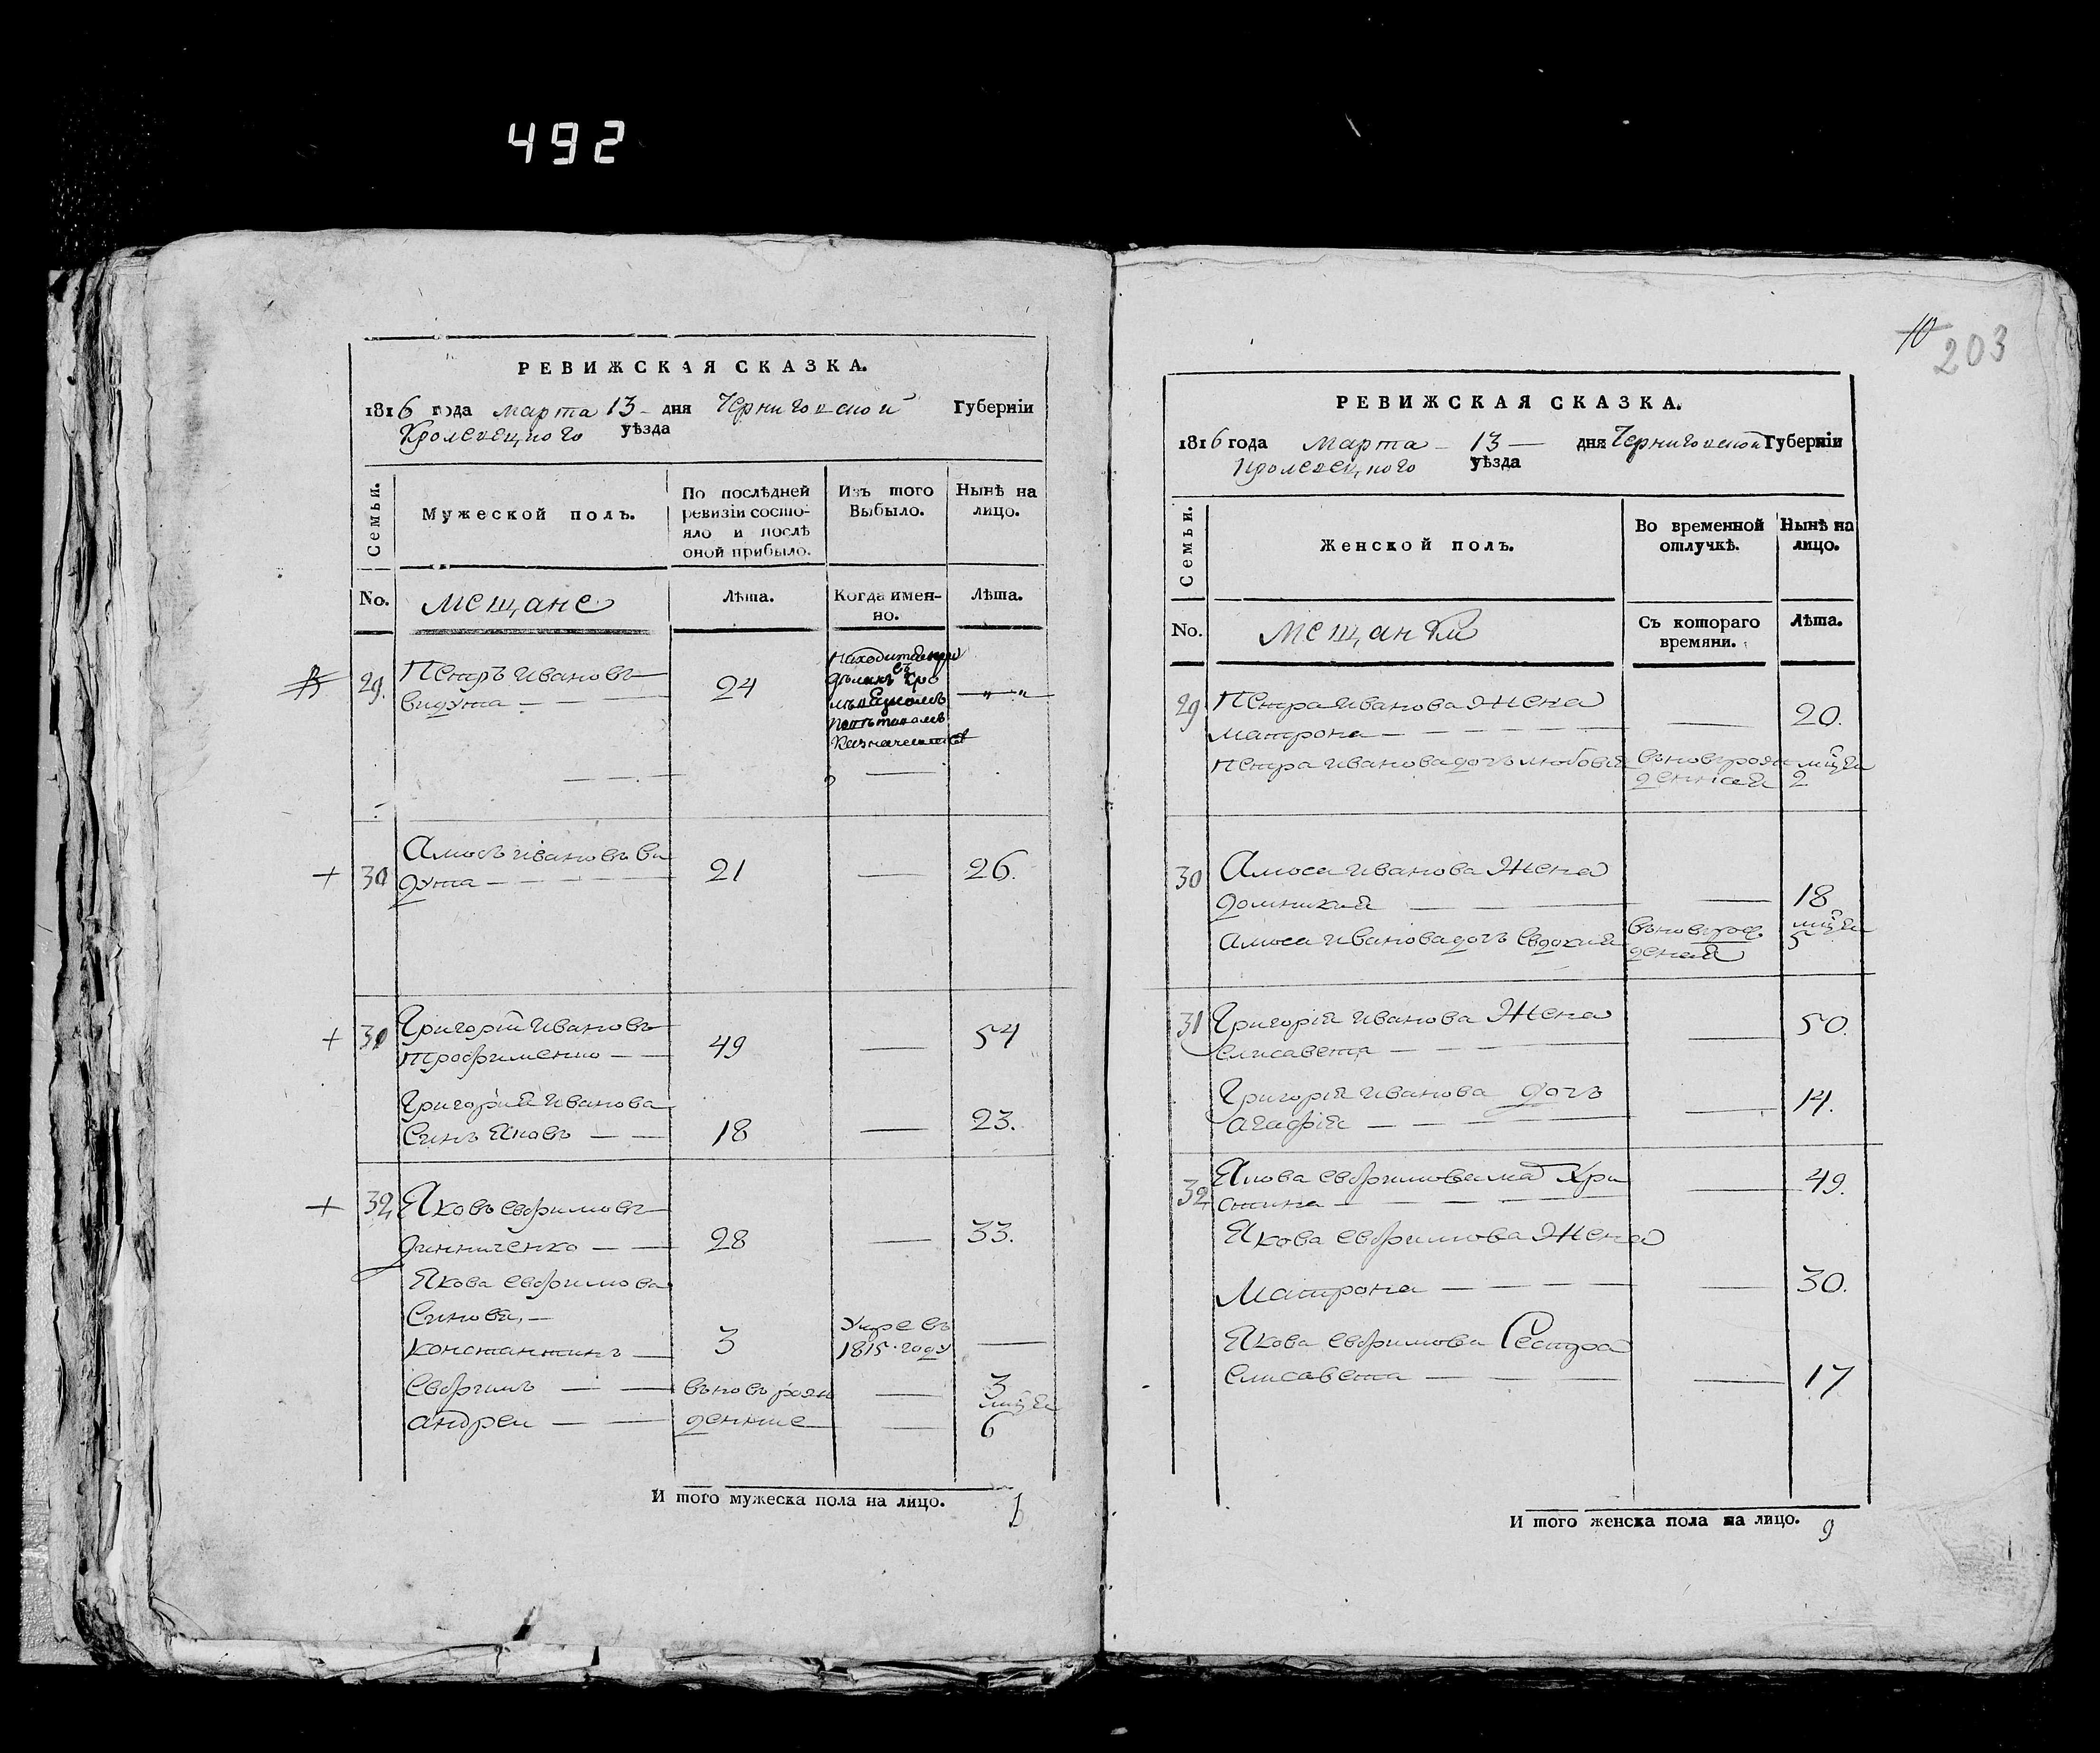 492
РЕВИЖСКАЯ СКАЗКА.
1816 года марта 13 дня Черниговской Губерніи
Кролевецкого уѣзда
Семьи.
Мужеской полъ.
По послѣдней ревизіи состояло и послѣ оной прибыло.
Изъ того Выбыло.
Нынѣ на лицо.
No.
мещане
Лѣта.
Когда имен-
но.
Лѣта.
29. Петръ Ивановъ
24
30 Амосъ Ивановъ Ви
дута 21 — 26.
31 Григорій Ивановъ
Трофименко — 49 — 54
Григорія Иванова
Синъ Яковъ — 18 — 23.
32 Яковъ Евфимовъ
28 — 33.
Якова Евфимова
Синовя, —
Константинъ — 3 Умре въ 1815 году —
Евфимъ — — вновь рож — 3
андреи — — денние — мцей 6
И того мужеска пола на лицо.
10
203
РЕВИЖСКАЯ СКАЗКА.
1816 года Марта 13 — дня Черниговской Губерніи
Кролевецкого уѣзда
Семьи.
Женской полъ.
Во временной отлучкѣ.
Нынѣ на лицо.
No.
мещанки
Съ котораго времяни.
Лѣта.
29 Петра Иванова Жена
Матрона — 20.
Петра Иванова дочъ Любовія вновърож мцей
денная 2
30 Амоса Иванова Жена
Домникия — 18
Амоса Иванова дочъ Евдокия мцей
5
31 Григорія Иванова Жена
Елисавета — 50.
Григорія Иванова дочъ
Агафія — 14.
32 Якова Евфимова ма Хри
стина — 49.
Якова Евфимова Жена
Матрона — 30.
Якова Евфимова Сестра
Елисавета — 17
И того женска пола на лицо. 9